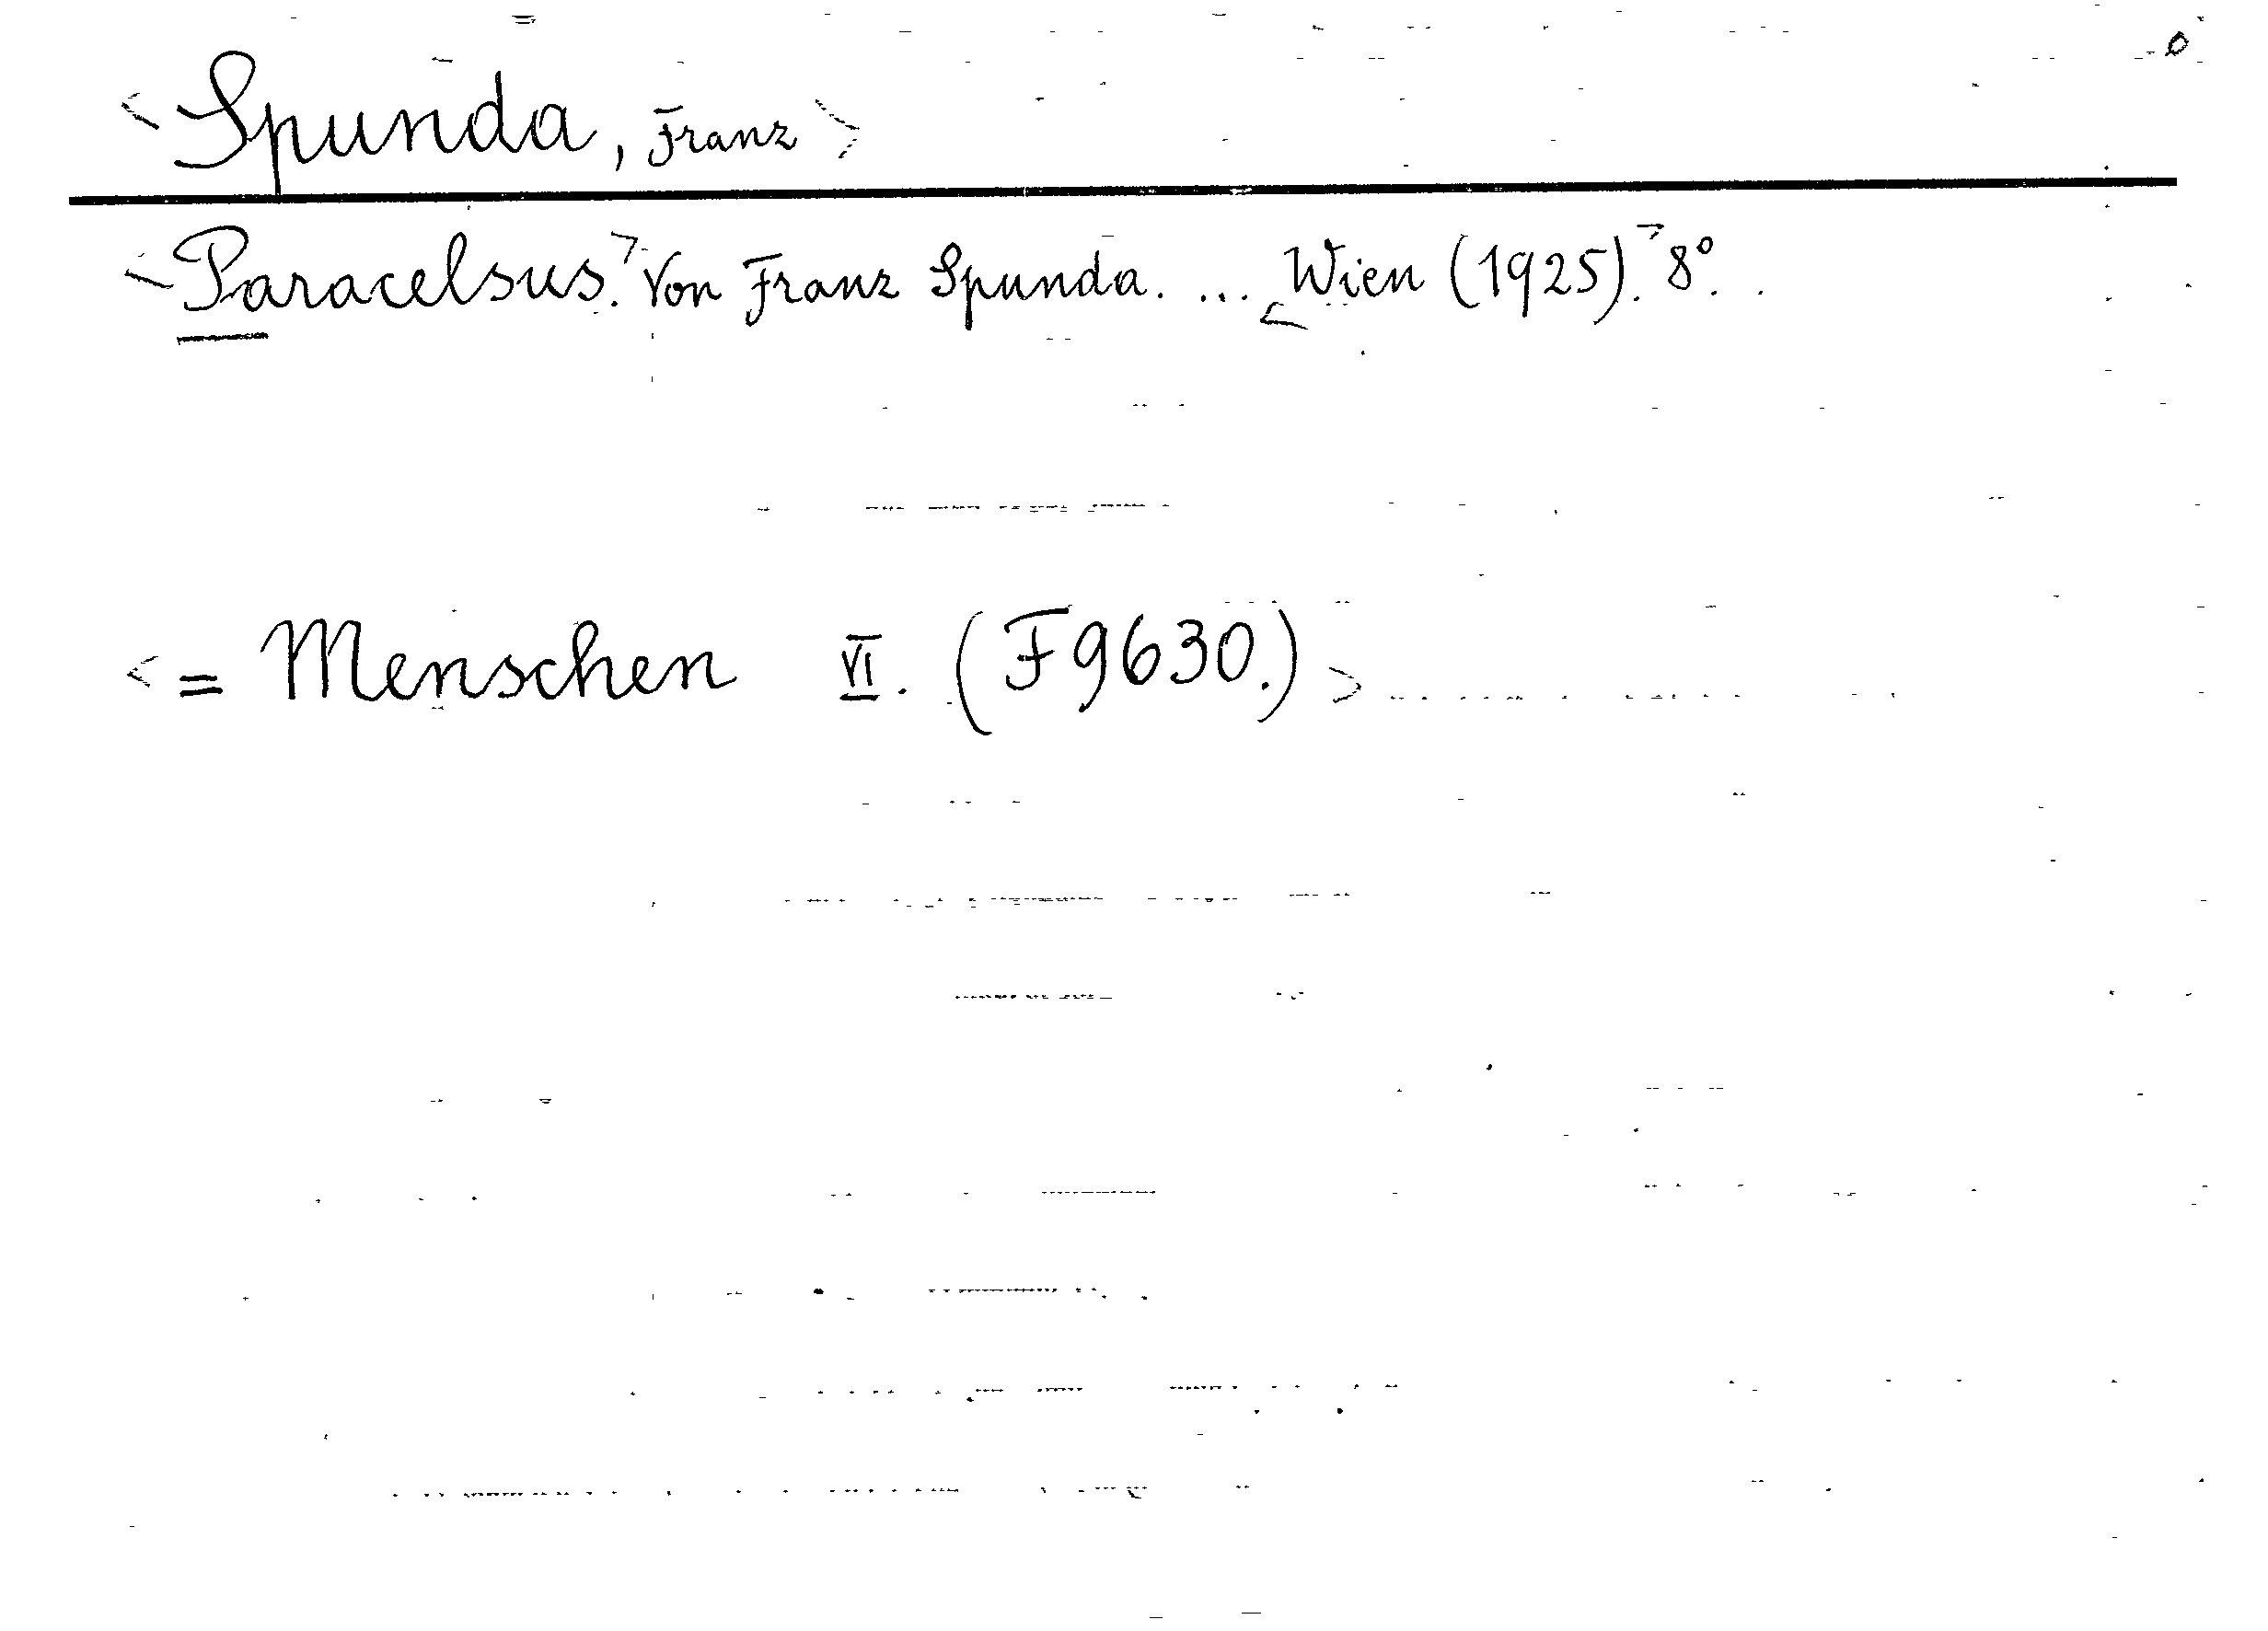 <Spunda, Franz>
<Paracelsus.> Von Franz Spunda. ... <Wien (1925).> 8°.
<= Menschen VI. (F9630.)>